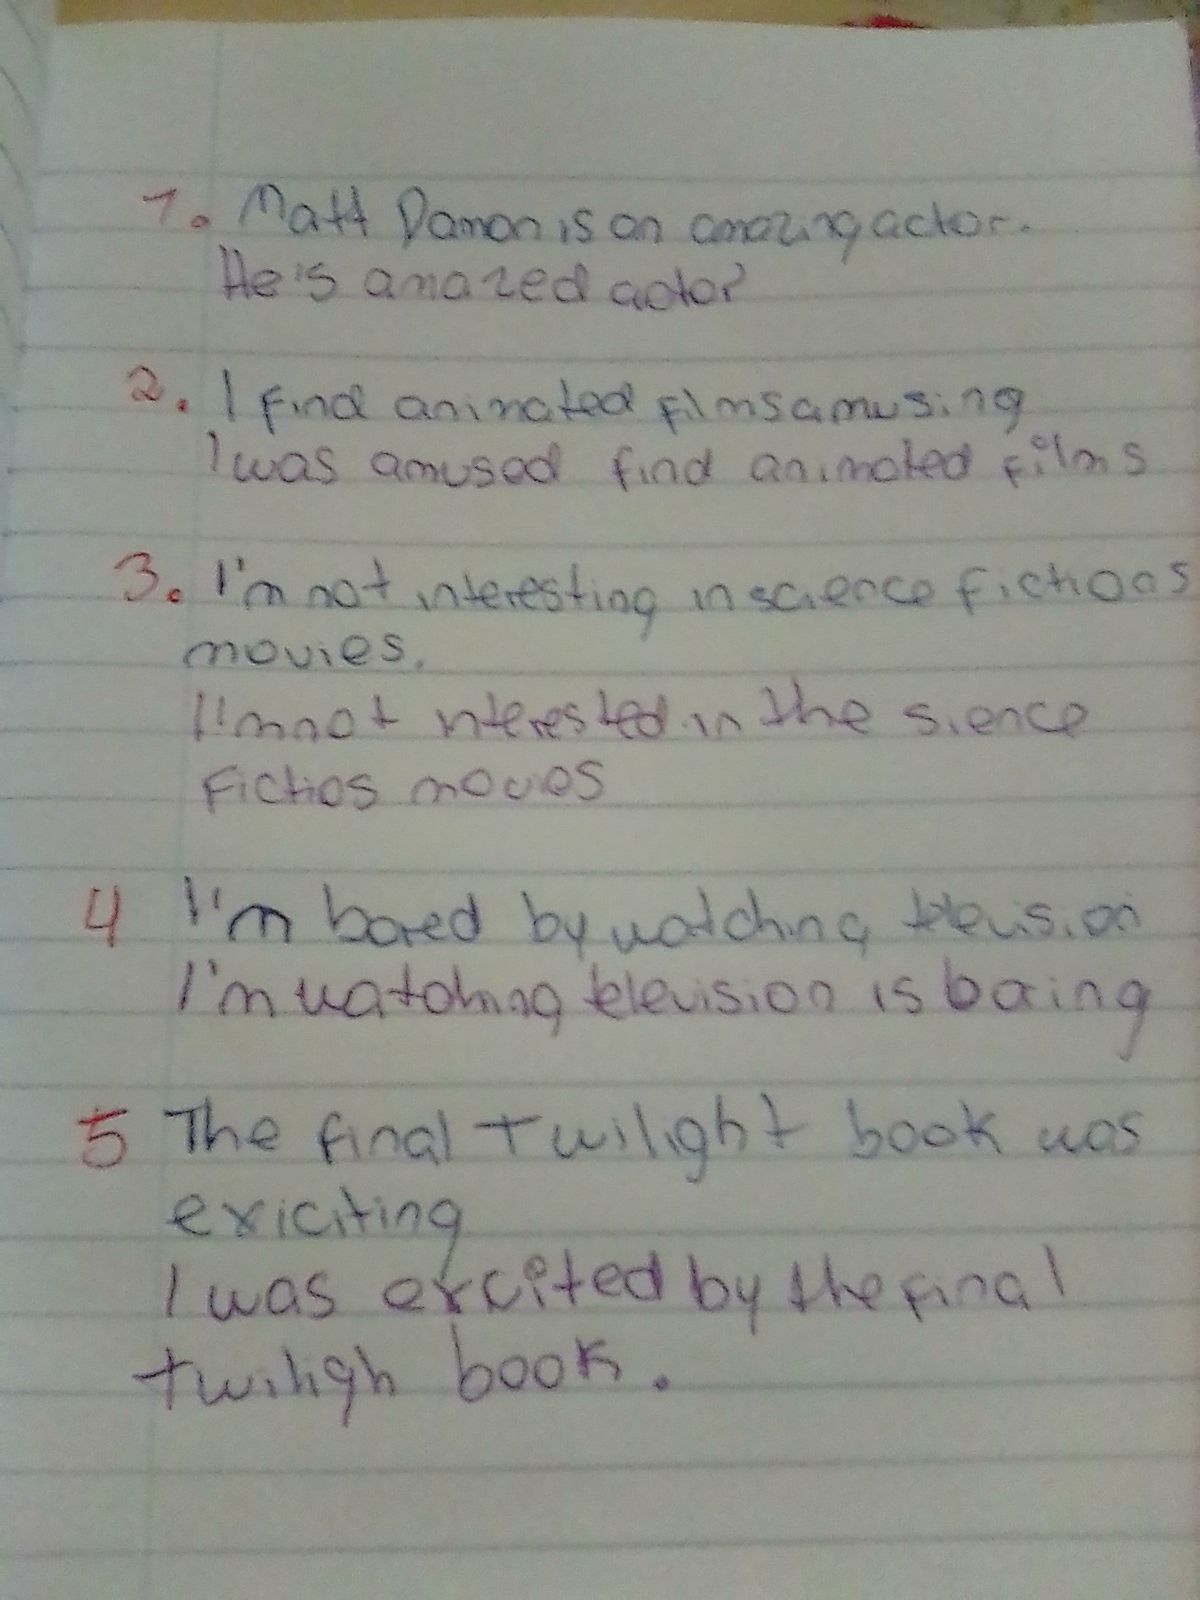 1. Matt Damon is an amazing actor.
He's amazed actor
2. I find animated films amusing
I was amused find animated films
3. I'm not interesting in science fictions
movies.
I'm not nterested in the sience
Fictios movies
4 I'm bored by watching television
I'm watching television is boring
5 The final twilight book was
exiciting
I was excited by the final
twiligh book.